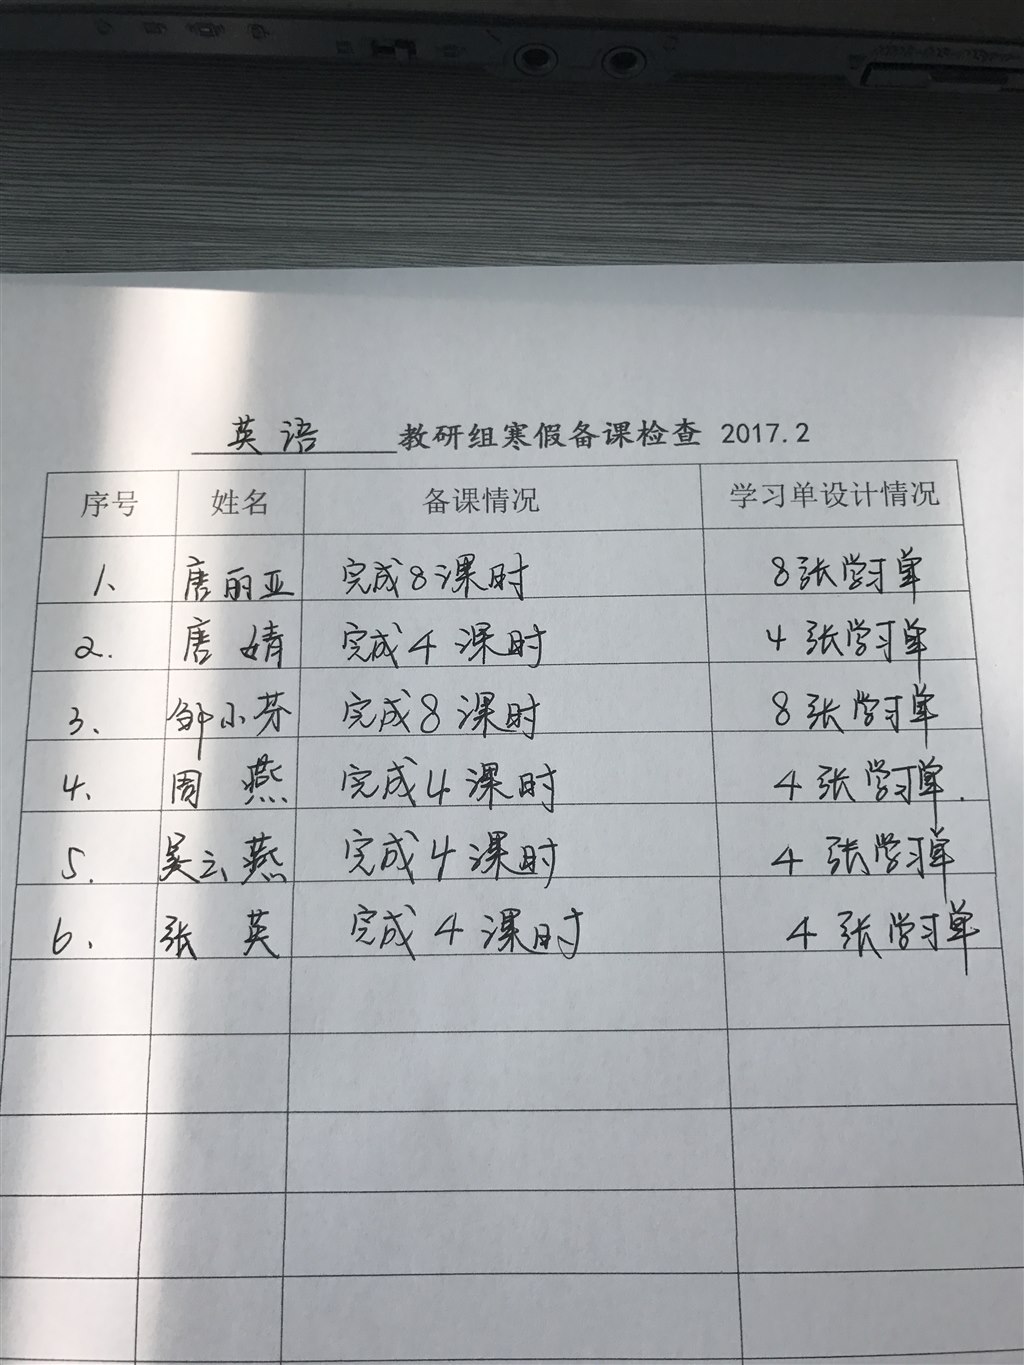 英语 教研组寒假备课检查 2017.2
序号 姓名 备课情况 学习单设计情况
1、 唐丽亚 完成8课时 8张学习单
2. 唐婧 完成4课时 4张学习单
3、 邹小芬 完成8课时 8张学习单
4、 周燕 完成4课时 4张学习单.
5. 吴云燕 完成4课时 4张学习单
6、 张英 完成4课时 4张学习单